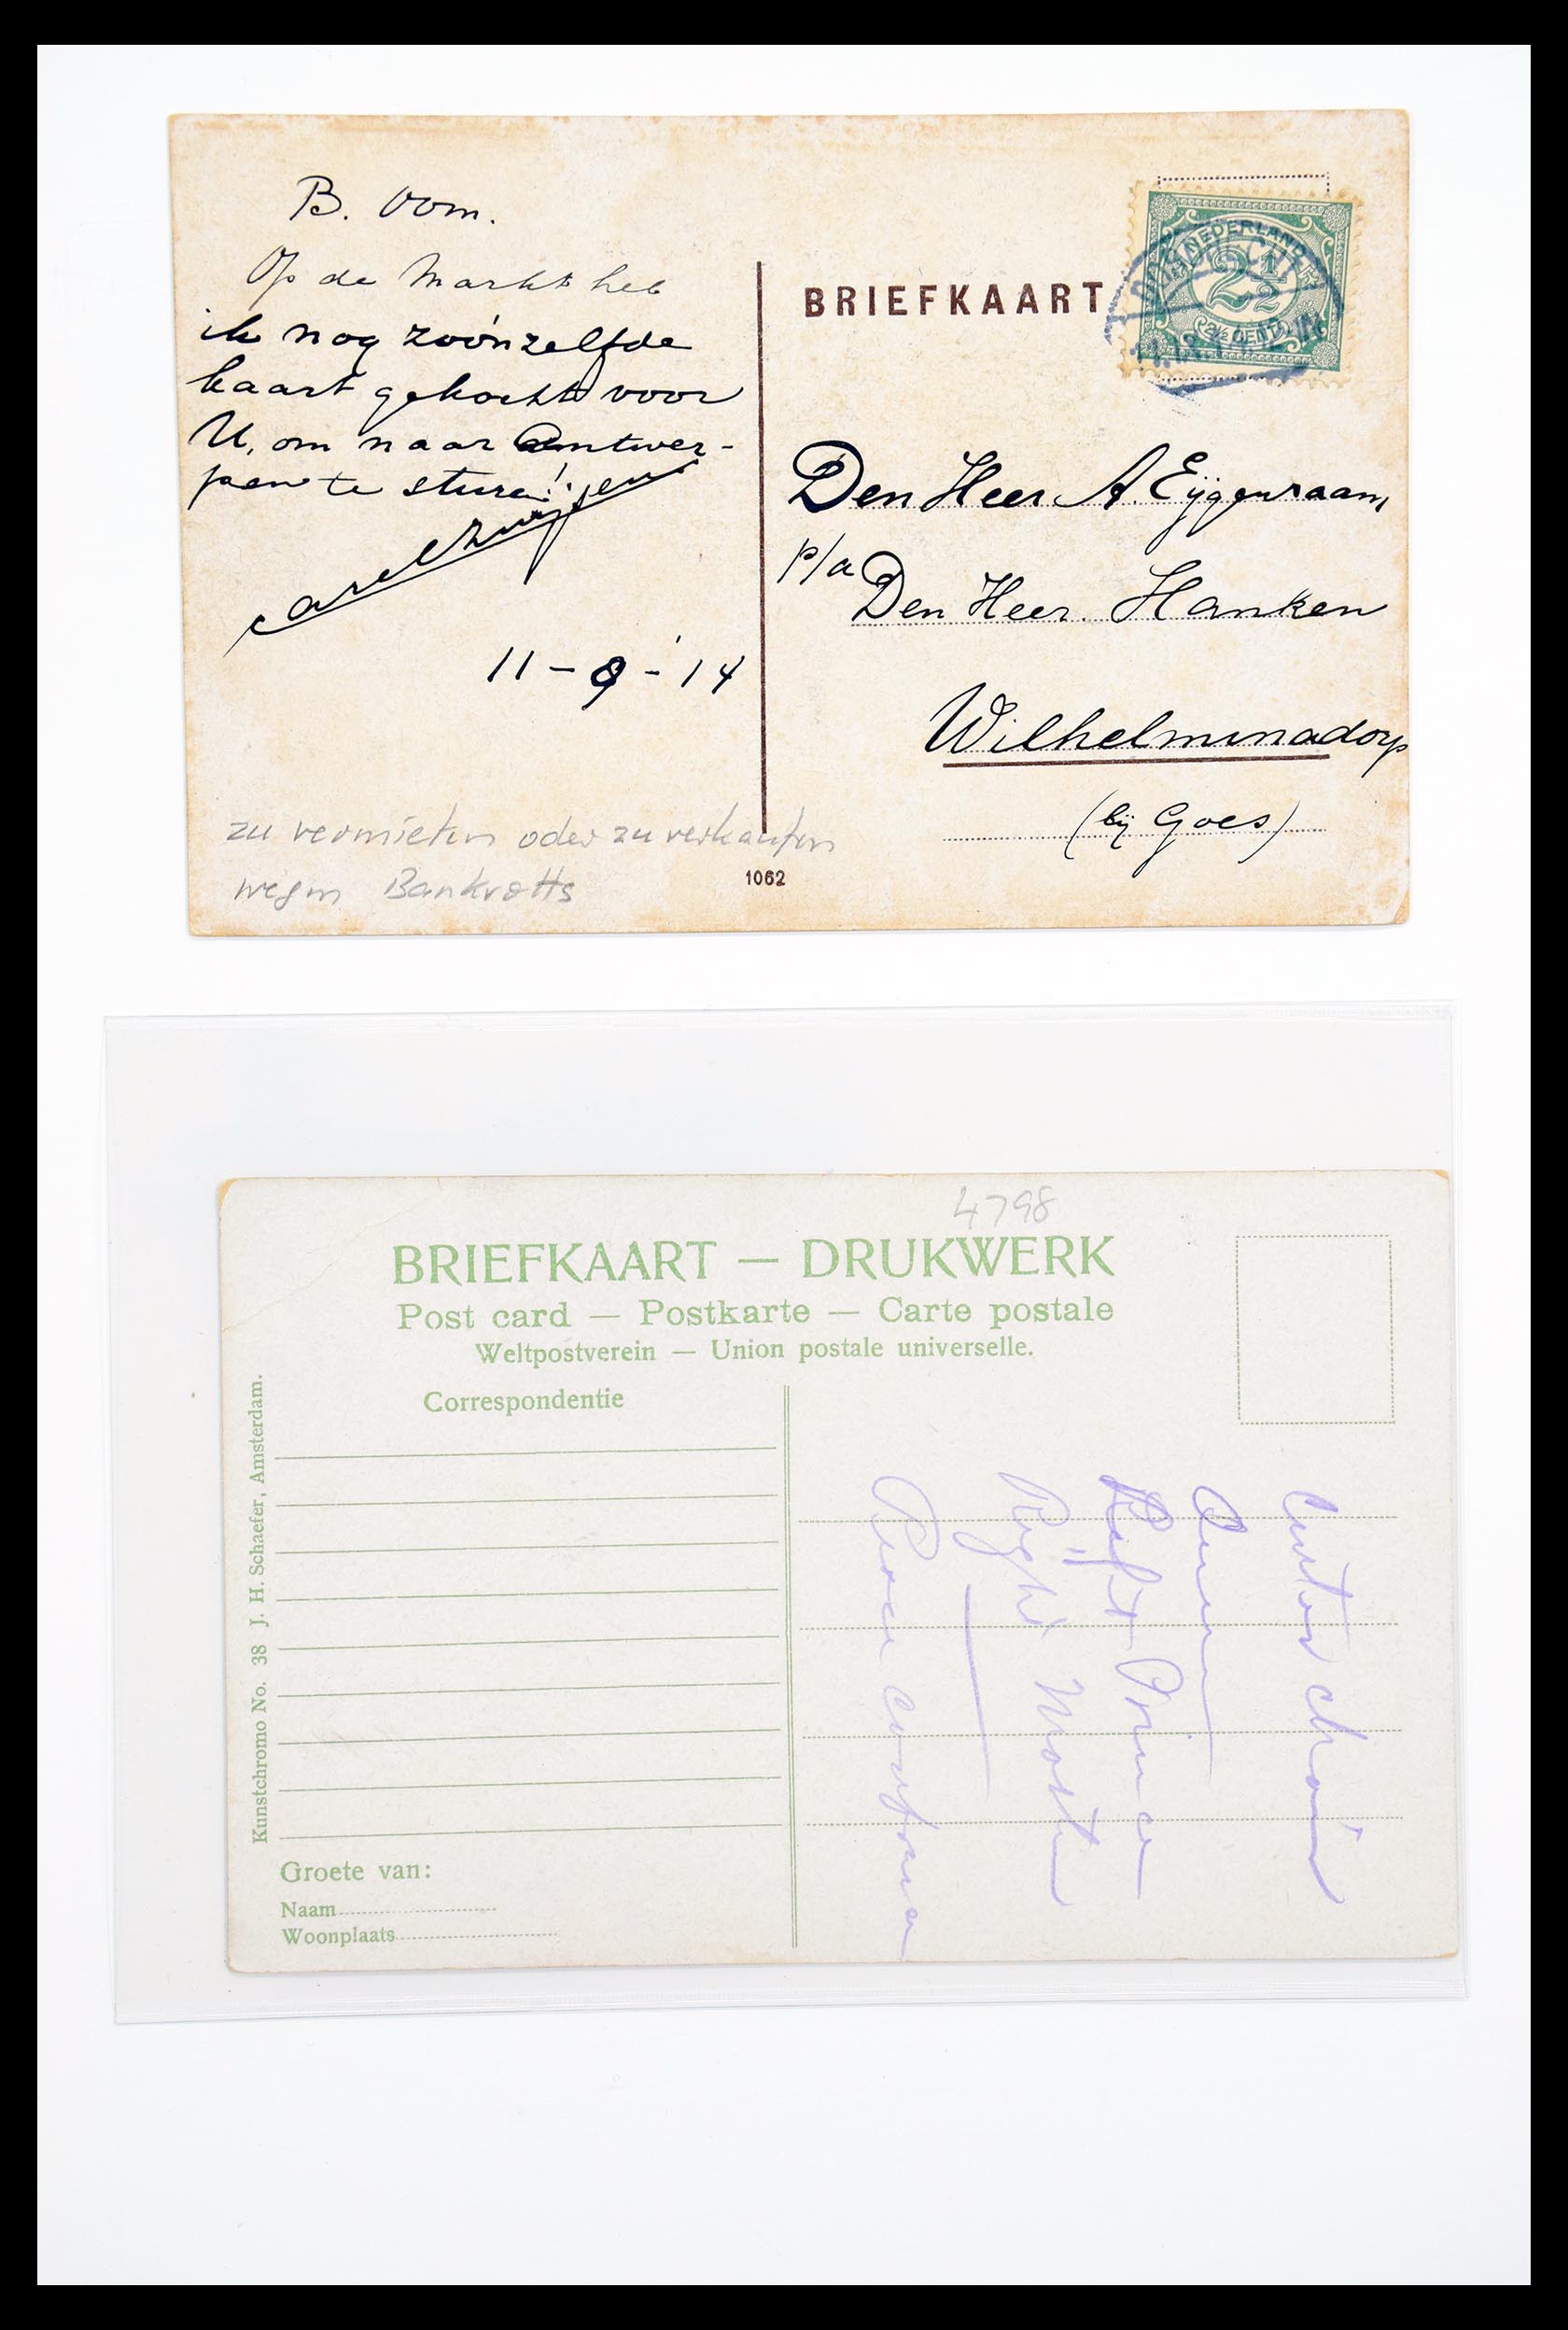 B. Oom.
Op de Markt heb
ik nog zoo'n zelfde
kaart gekocht voor
U, om naar Antwer-
pen te sturen!
11-9-'14
zu vermieten oder zu verkaufen
wegen Bankrotts
BRIEFKAART
NEDERLAND
2½
2½ CENT
Den Heer A. Eijgenraam,
p/a Den Heer. Hanken
Wilhelminadorp
(bij Goes)
1062
4798
BRIEFKAART — DRUKWERK
Post card — Postkarte — Carte postale
Weltpostverein — Union postale universelle.
Correspondentie
Kunstchromo No. 38 J. H. Schaefer, Amsterdam.
Groete van:
Naam
Woonplaats
Queen
Left Prince
Right